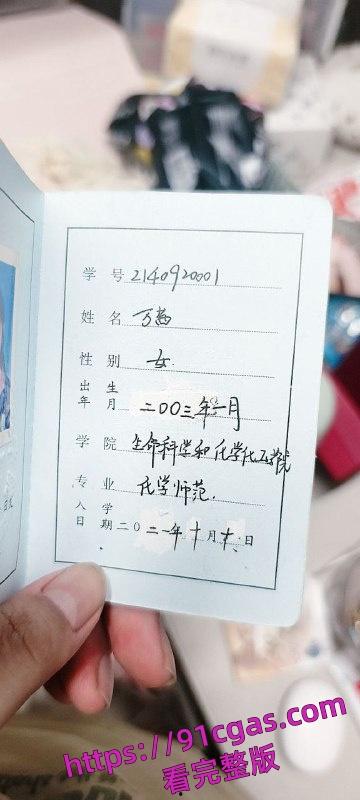 学 号 2140920001
姓 名 万
性 别 女.
出 生
年 月 二00三年一月
学 院 生命科学和化学化工学院
专 业 化学师范.
入 学
日 期 二0二一年十月十日
https://91cgas.com
看完整版